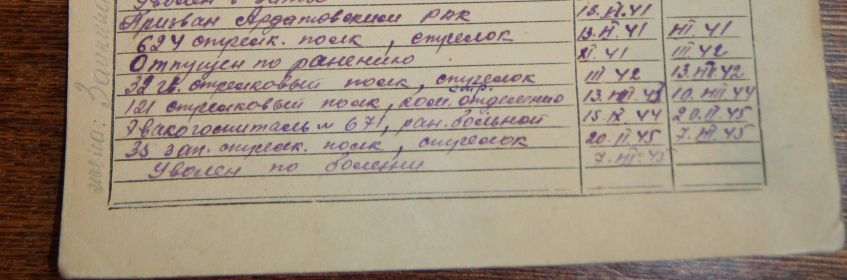 Уволен в запас
Призван Ардатовским РВК 18.VI.41
624 стрелк. полк, стрелок 41 VII.41
Отпущен по ранению 41 III.42
32 гв. стрелковый полк, стрелок III 42 42
стр.
121 стрелковый полк, ком. отделения 13. 10. 44
Эвакогоспиталь № 671, ран. больной 15.IX 44 20.II.45
35 зап. стрелк. полк, стрелок 20.II.45 7.III.45
Уволен по болезни 7.III.45